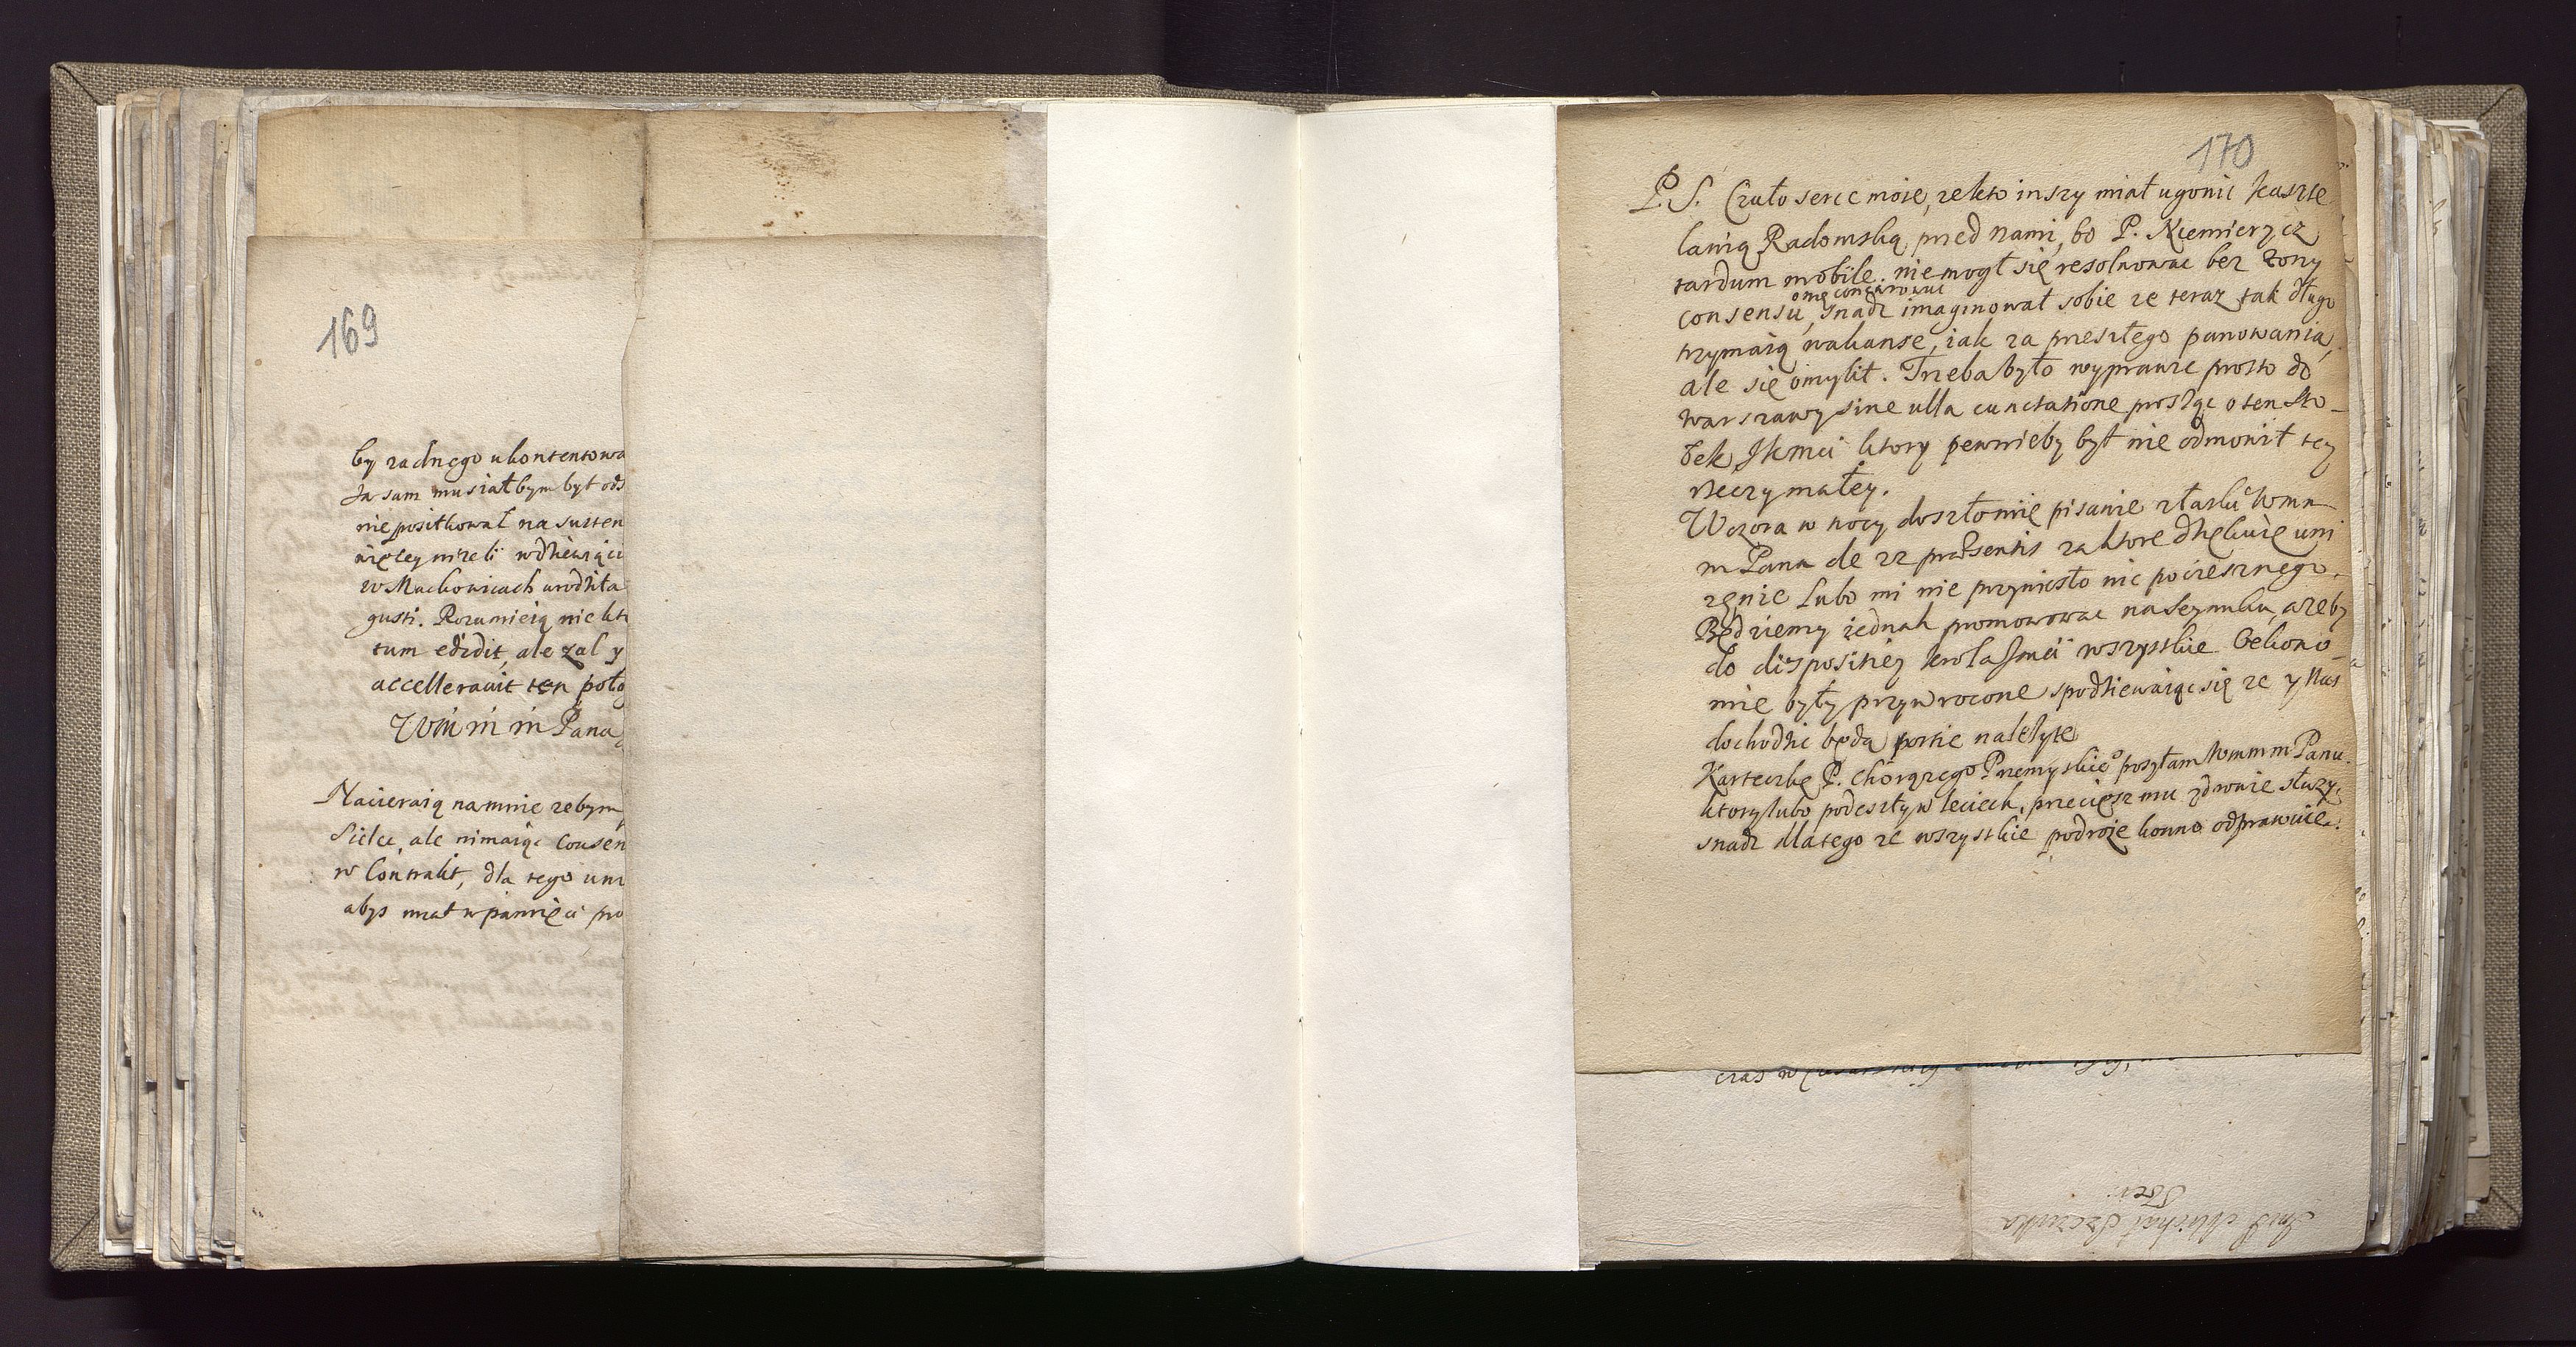 169
by zadnego ukontentowa
Ja sam musiałbym byt ods
nie positkował na susten
więcey nizeli w dziewięci
w Mackowicach urodziła
gusti. Rozumieią niekto
tum edidit, ale zal y
accelleravit ten poło
Wm m m Pana
Nacieraią na mnie zebym
Sielce, ale nimaiąc Consen
w Contrakt, dla tego uni
abys miał w pamięci pro
170
P. S. Czuło serce moie, ze kto inszy miał ugonic kaszte
lanią Radomską przed nami, bo P. Niemierycz
tardum mobile. nie mogł się resolwowac bez zony
consensu, snadz imaginował sobie ze teraz tak długo
trzymaią wakanse, iak za przeszłego panowania,
ale się omylił. Trzeba było wyprawic prosto do
Warszawy sine ulla cunctatione prosząc o ten sto-
łek JKmci ktory pewnieby był nie odmowił tey
rzeczy małey.
Wczora w nocy doszło mię pisanie z łaski Wmm
m Pana de 22 præsentis za ktore dziękuię uni
zenie lubo mi nie przyniosło nic pociesznego.
Będziemy iednak promowowac na Seymiku, azeby
do dispositiey krola Jmci wszystkie Oekono-
mie były przywrocone spodziewaiąc się ze y nas
dochodzic będą porcie nalezyte
Karteczkę P. Chorązego Przemyskiego posyłam Wmmm Panu.
ktory lubo podeszły w leciech, przeciesz mu zdrowie słuzy,
snadz dlatego ze wszystkie podroze konno odprawuie.
czas w
Jmć P. Michał Szczuka